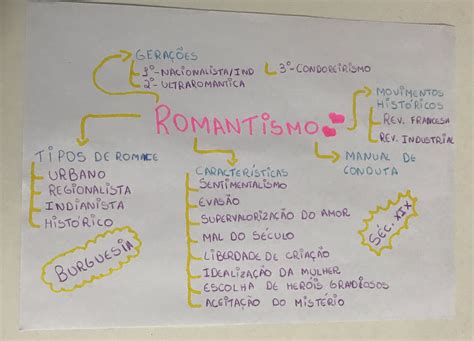 GERAÇÕES
1º-NACIONALISTA/IND
2º-ULTRAROMANTICA
3º-CONDOREIRISMO
MOVIMENTOS
HISTÓRICOS
REV. FRANCESA
REV. INDUSTRIAL
ROMANTISMO
TIPOS DE ROMACE
URBANO
REGIONALISTA
INDIANISTA
HISTÓRICO
BURGUESIA
CARACTERÍSTICAS
SENTIMENTALISMO
EVASÃO
SUPERVALORIZAÇÃO DO AMOR
MAL DO SÉCULO
LIBERDADE DE CRIAÇÃO
IDEALIZAÇÃO DA MULHER
ESCOLHA DE HERÓIS GRADIOSOS
ACEITAÇÃO DO MISTÉRIO
MANUAL DE
CONDUTA
SÉC. XIX